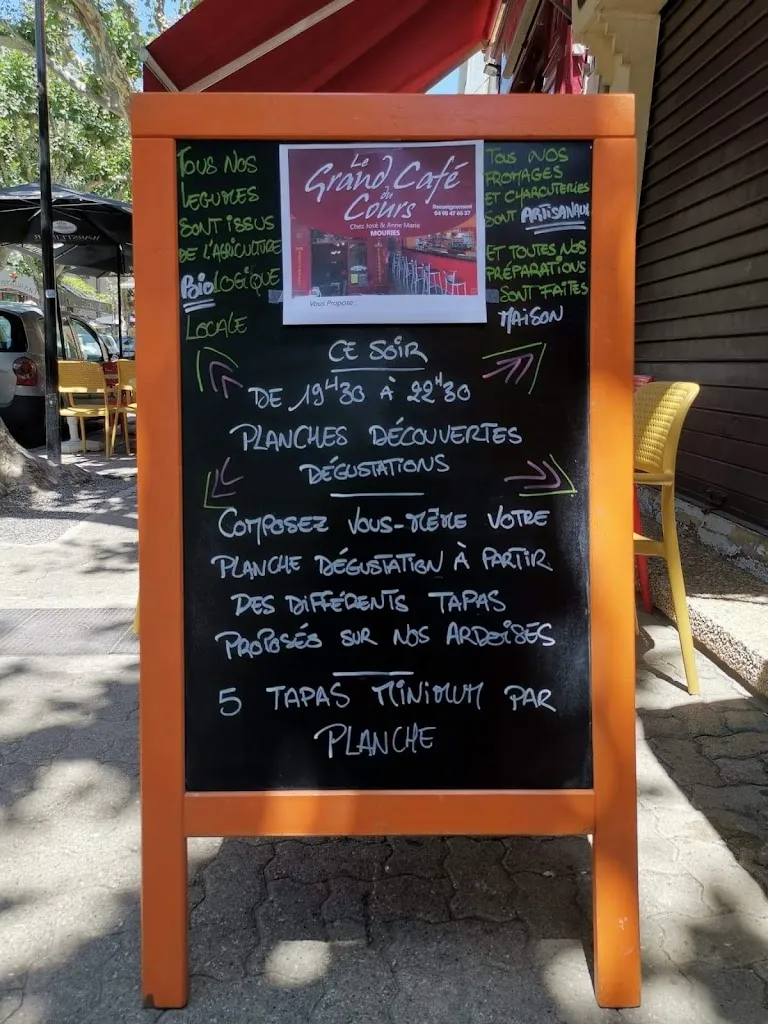 TOUS NOS
LEGUMES
SONT ISSUS
DE L'AGRICULTURE
BIOLOGIQUE
LOCALE
Le
Grand Café
du
Cours
Renseignement
04 90 47 65 37
Chez José & Anne Marie
MOURIES
Vous Propose :
TOUS NOS
FROMAGES
ET CHARCUTERIES
SONT ARTISANAUX
ET TOUTES NOS
PRÉPARATIONS
SONT FAITES
MAISON
CE SOIR
DE 19H30 À 22H30
PLANCHES DÉCOUVERTES
DÉGUSTATIONS
COMPOSEZ VOUS-MÊME VOTRE
PLANCHE DÉGUSTATION À PARTIR
DES DIFFÉRENTS TAPAS
PROPOSÉS SUR NOS ARDOISES
5 TAPAS MINIMUM PAR
PLANCHE